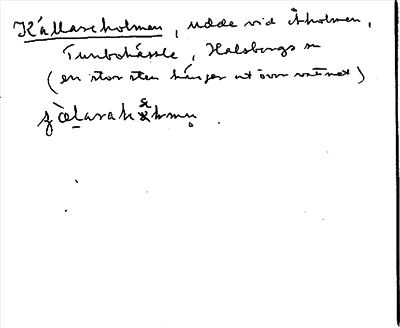 Källareholmen, udde vid Åholmen,
Tunbohässle, Halsbergs sn
(en stor sten hänger ut över vattnet)